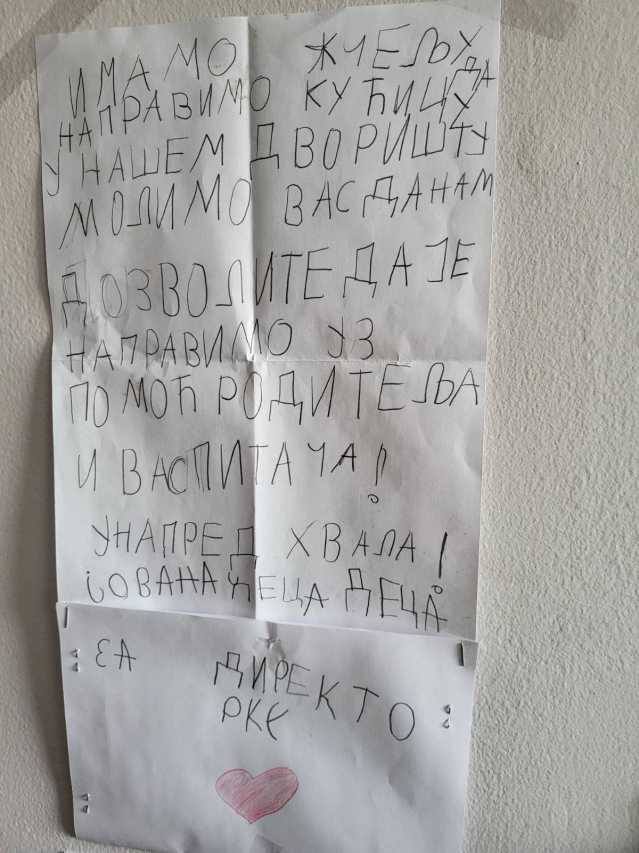 ИМАМО ЖЧЕЉУ ДА
НАПРАВИМО КУЋИЦУ
У НАШЕМ ДВОРИШТУ
МОЛИМО ВАС ДАНАМ
ДОЗВОЛИТЕ ДА ЈЕ
НАПРАВИМО УЗ
ПОМОЋ РОДИТЕЉА
И ВАСПИТАЧА!
УНАПРЕД ХВАЛА!
јОВАНА ДЕЦА ДЕЦА
ЗА ДИРЕКТО
РКЕ